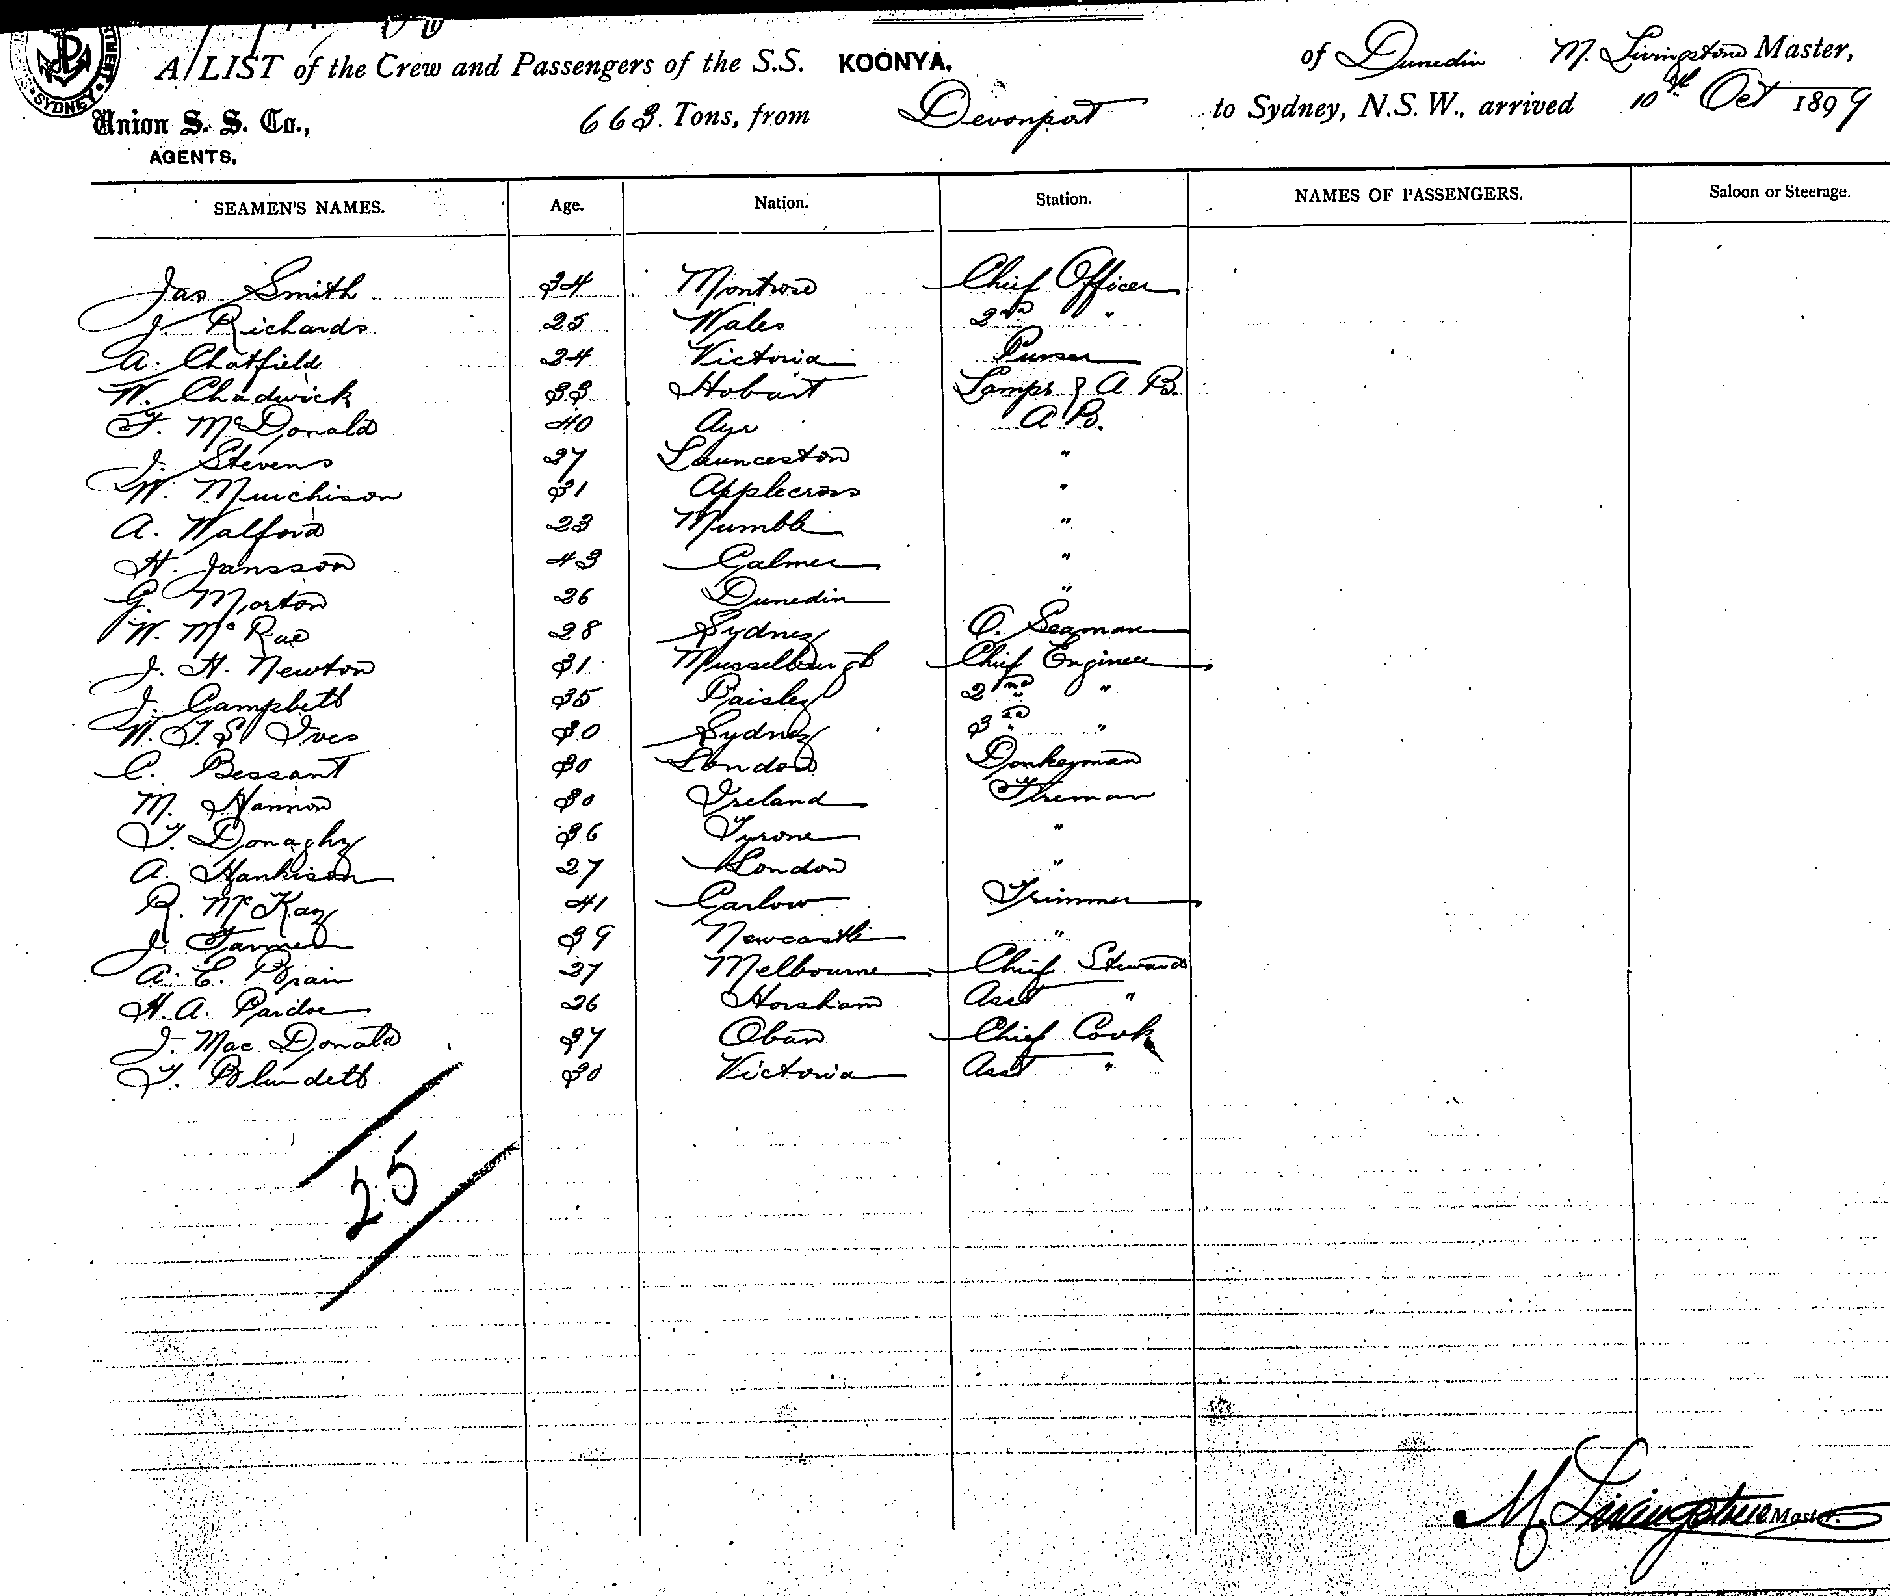 SYDNEY
A LIST of the Crew and Passengers of the S.S. KOONYA. of Dunedin M. Livingstone Master,
Union S. S. Co., 663 Tons, from Devonport to Sydney, N.S.W., arrived 10th Oct 1899
AGENTS.
SEAMEN'S NAMES. Age. Nation. Station. NAMES OF PASSENGERS. Saloon or Steerage.
Jas Smith 34 Montrose Chief Officer
J. Richards 25 Wales 2nd "
A. Chatfield 24 Victoria Purser
W. Chadwick 33 Hobart Lamps } A B.
F. McDonald 40 Ayr A B.
J. Stevens 27 Launceston "
W. Murchison 31 Applecross "
A. Walford 23 Mumble "
H. Jansson 43 Calmer "
G. Morton 26 Dunedin "
W. McRae 28 Sydney O. Seaman
J. H. Newton 31 Musselburgh Chief Engineer
J. Campbell 35 Paisley 2nd "
W. T. S. Ives 30 Sydney 3rd "
C. Bessant 30 London Donkeyman
M. Hannon 30 Ireland Fireman
T. Donaghy 36 Tyrone "
A. Hankison 27 London "
R. McKay 41 Carlow Trimmer
J. 39 Newcastle "
A. E. Brain 27 Melbourne Chief Steward
H. A. Pardoe 26 Horsham Asst "
J. Mac Donald 37 Oban Chief Cook
T. Blundell 30 Victoria Asst "
25
M. Livingstone Master.